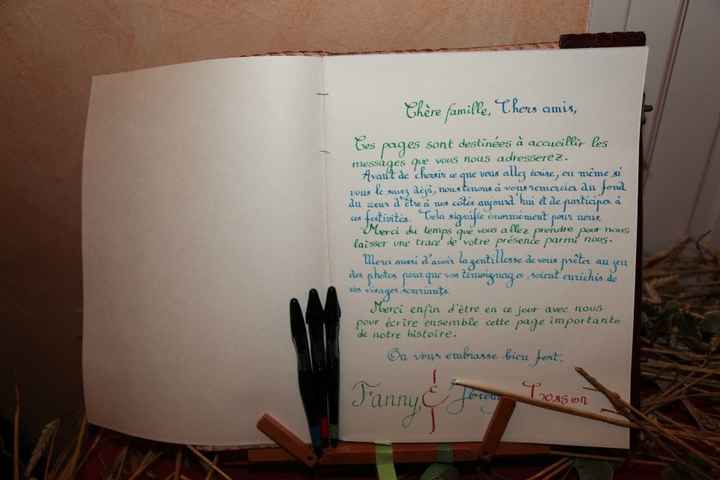 Chère famille, Chers amis,
Ces pages sont destinées à accueillir les
messages que vous nous adresserez.
Avant de choisir ce que vous allez écrire, ou même si
vous le savez déjà, nous tenons à vous remercier du fond
du cœur d'être à nos côtés aujourd'hui et de participer à
ces festivités. Cela signifie énormément pour nous.
Merci du temps que vous allez prendre pour nous
laisser une trace de votre présence parmi nous.
Merci aussi d'avoir la gentillesse de vous prêter au jeu
des photos pour que vos témoignages soient enrichis de
vos visages souriants.
Merci enfin d'être en ce jour avec nous
pour écrire ensemble cette page importante
de notre histoire.
On vous embrasse bien fort,
Fanny &